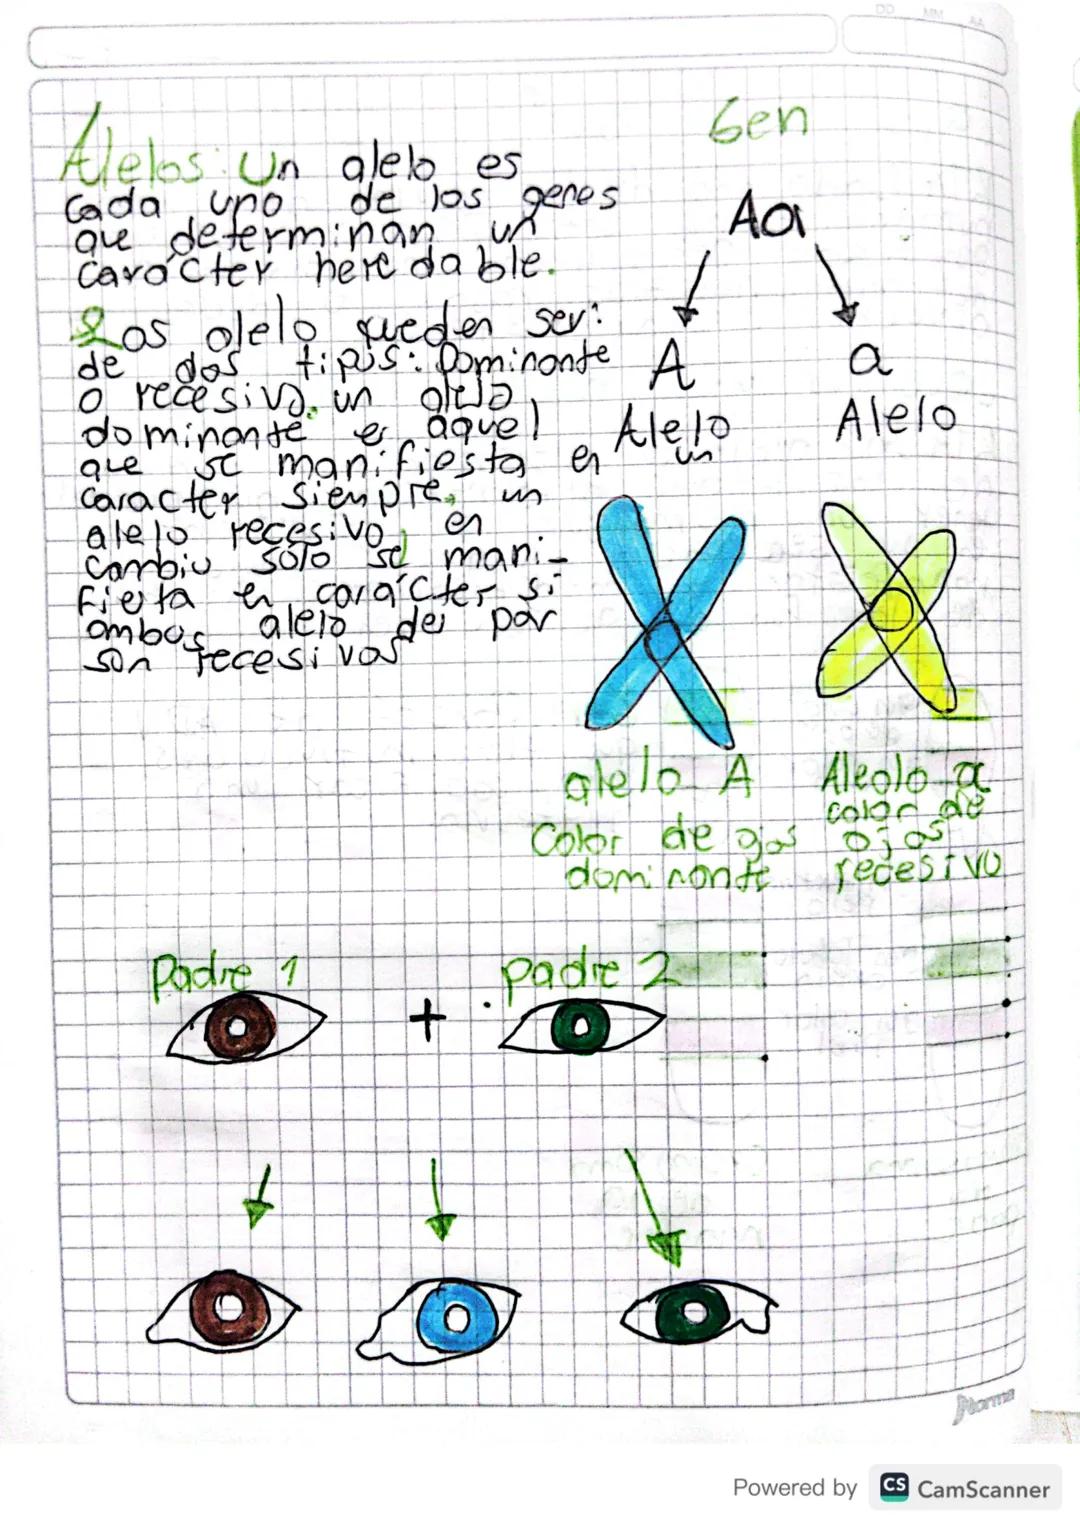 DD MM AA
Alelos: Un alelo es
cada uno de los genes
que determinan un
carácter heredable.
Los alelo pueden ser:
de dos tipos: Dominante
o recesivo. un alelo
dominante es aquel
que se manifiesta en un
caracter siempre. un
alelo recesivo, en
cambio sólo se mani-
fiesta en carácter si
ambos alelo del par
son recesivos
Gen
Aa
A a
Alelo Alelo
alelo A
Color de ojos
dominante
Alealo a
color de
ojos
recesivo
Padre 1 + padre 2
Norma
Powered by CS CamScanner